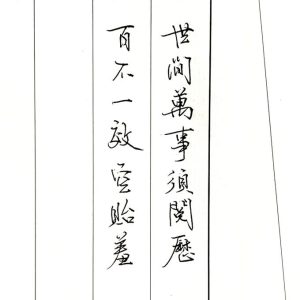 世间萬事須閱歷
百不一效空貽羞